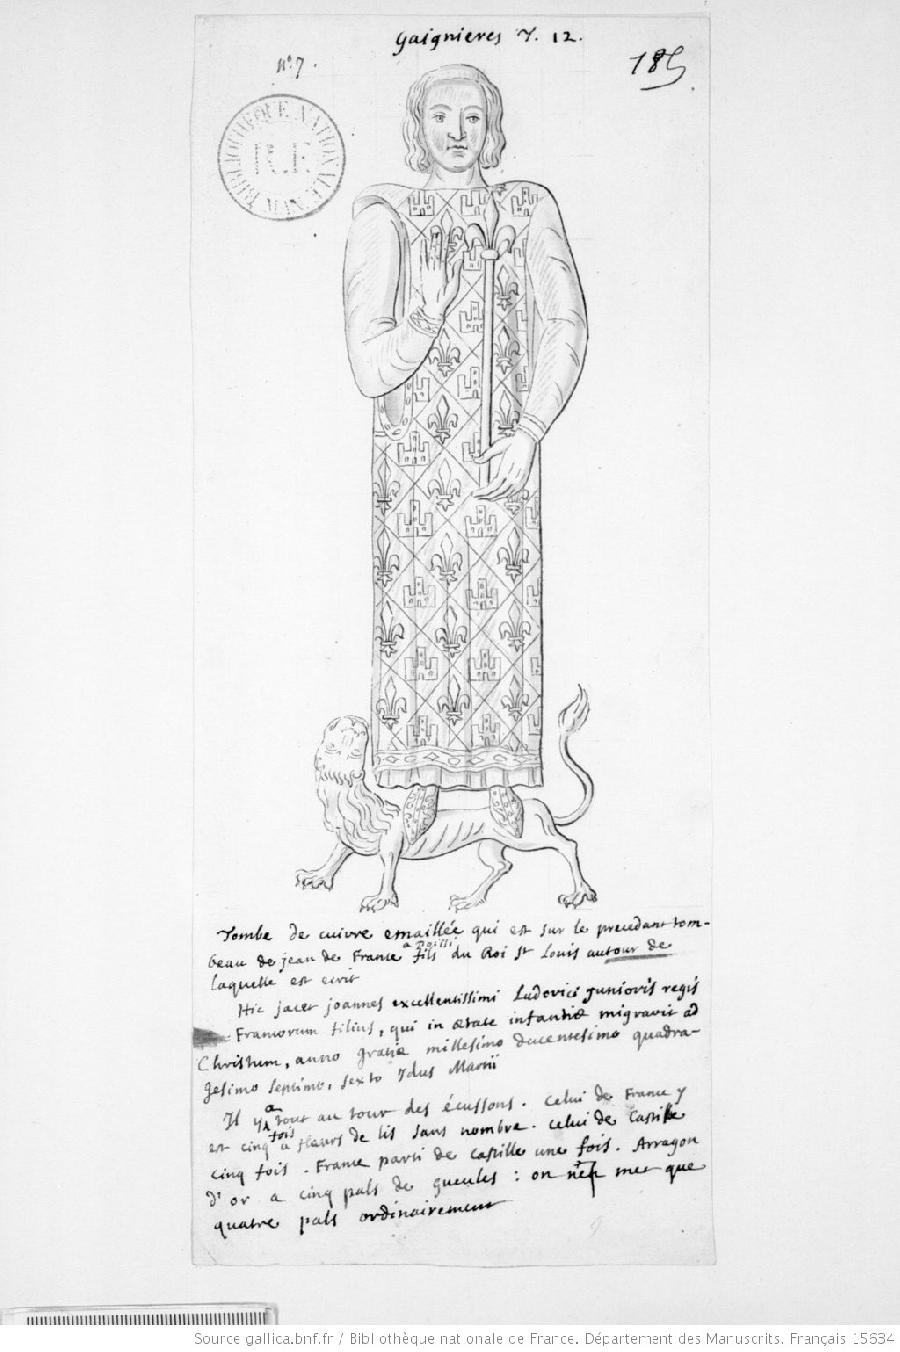 Gaignieres T. 12.
n° 7.
185
BIBLIOTHEQUE NATIONALE
R.F.
MAN.
Tombe de cuivre emaillée qui est sur le precedant tom-
beau de jean de France fils du Roi St Louis autour de
laquelle est ecrit
Hic jacet joannes excellentissimi Ludovici junioris regis
Francorum filius, qui in ætate infantiæ migravit ad
Christum, anno gratiæ millesimo ducentesimo quadra-
gesimo septimo, sexto ydus Martii
Il y a tout au tour des écussons. celui de France y
est cinq fois a fleurs de lis sans nombre. celui de Castille
cinq fois. France parti de Castille une fois. Arragon
d'or a cinq pals de gueules : on n'en met que
quatre pals ordinairement
Source gallica.bnf.fr / Bibliothèque nationale de France. Département des Manuscrits. Français 15634